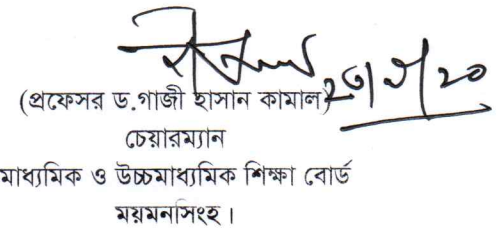 (প্রফেসর ড.গাজী হাসান কামাল)
চেয়ারম্যান
মাধ্যমিক ও উচ্চমাধ্যমিক শিক্ষা বোর্ড
ময়মনসিংহ।